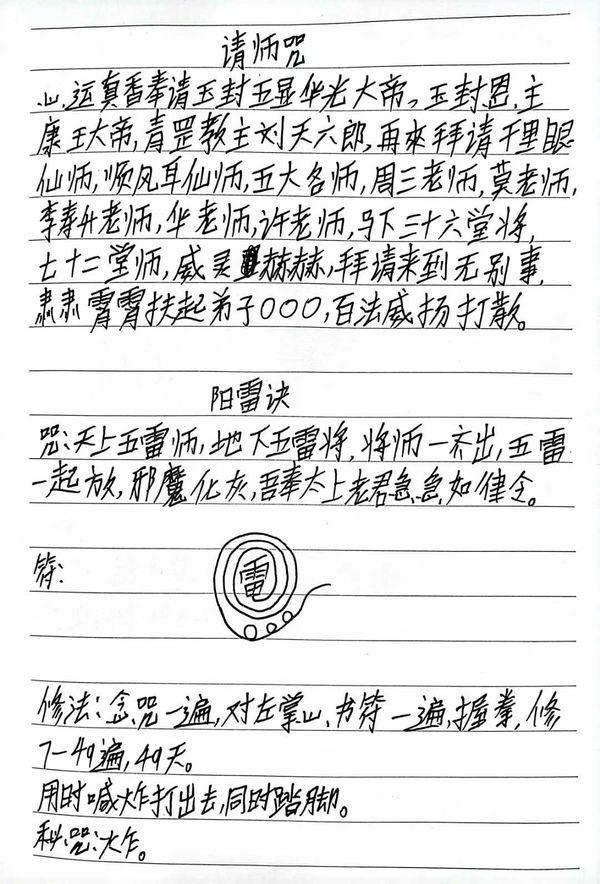 请师咒
心运真香奉请玉封五显华光大帝，玉封恩主
康王大帝，青罡教主刘天六郎，再來拜请千里眼
仙师，顺风耳仙师，五大名师，周三老师，莫老师，
李春升老师，华老师，许老师，马下三十六堂将，
七十二堂师，威灵赫赫，拜请来到无别事，
肃肃霄霄扶起弟子〇〇〇，百法威扬打散。
阳雷诀
咒：天上五雷师，地下五雷将，将师一齐出，五雷
一起放，邪魔化灰，吾奉太上老君急急如律令。
符：
電
修法：念咒一遍，对左掌心书符一遍，握拳，修
7-49遍，49天。
用时喊炸打出去，同时踏脚。
秘咒：炸。